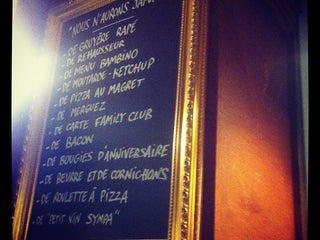 "NOUS N'AURONS JAMA
- DE GRUYÈRE RAPÉ
- DE REHAUSSEUR
- DE MENU BAMBINO
- DE MOUTARDE - KETCHUP
- DE PIZZA AU MAGRET
- DE MERGUEZ
- DE CARTE FAMILY CLUB
- DE BACON
- DE BOUGIES D'ANNIVERSAIRE
- DE BEURRE ET DE CORNICHONS
- DE ROULETTE À PIZZA
- DE "PETIT VIN SYMPA"